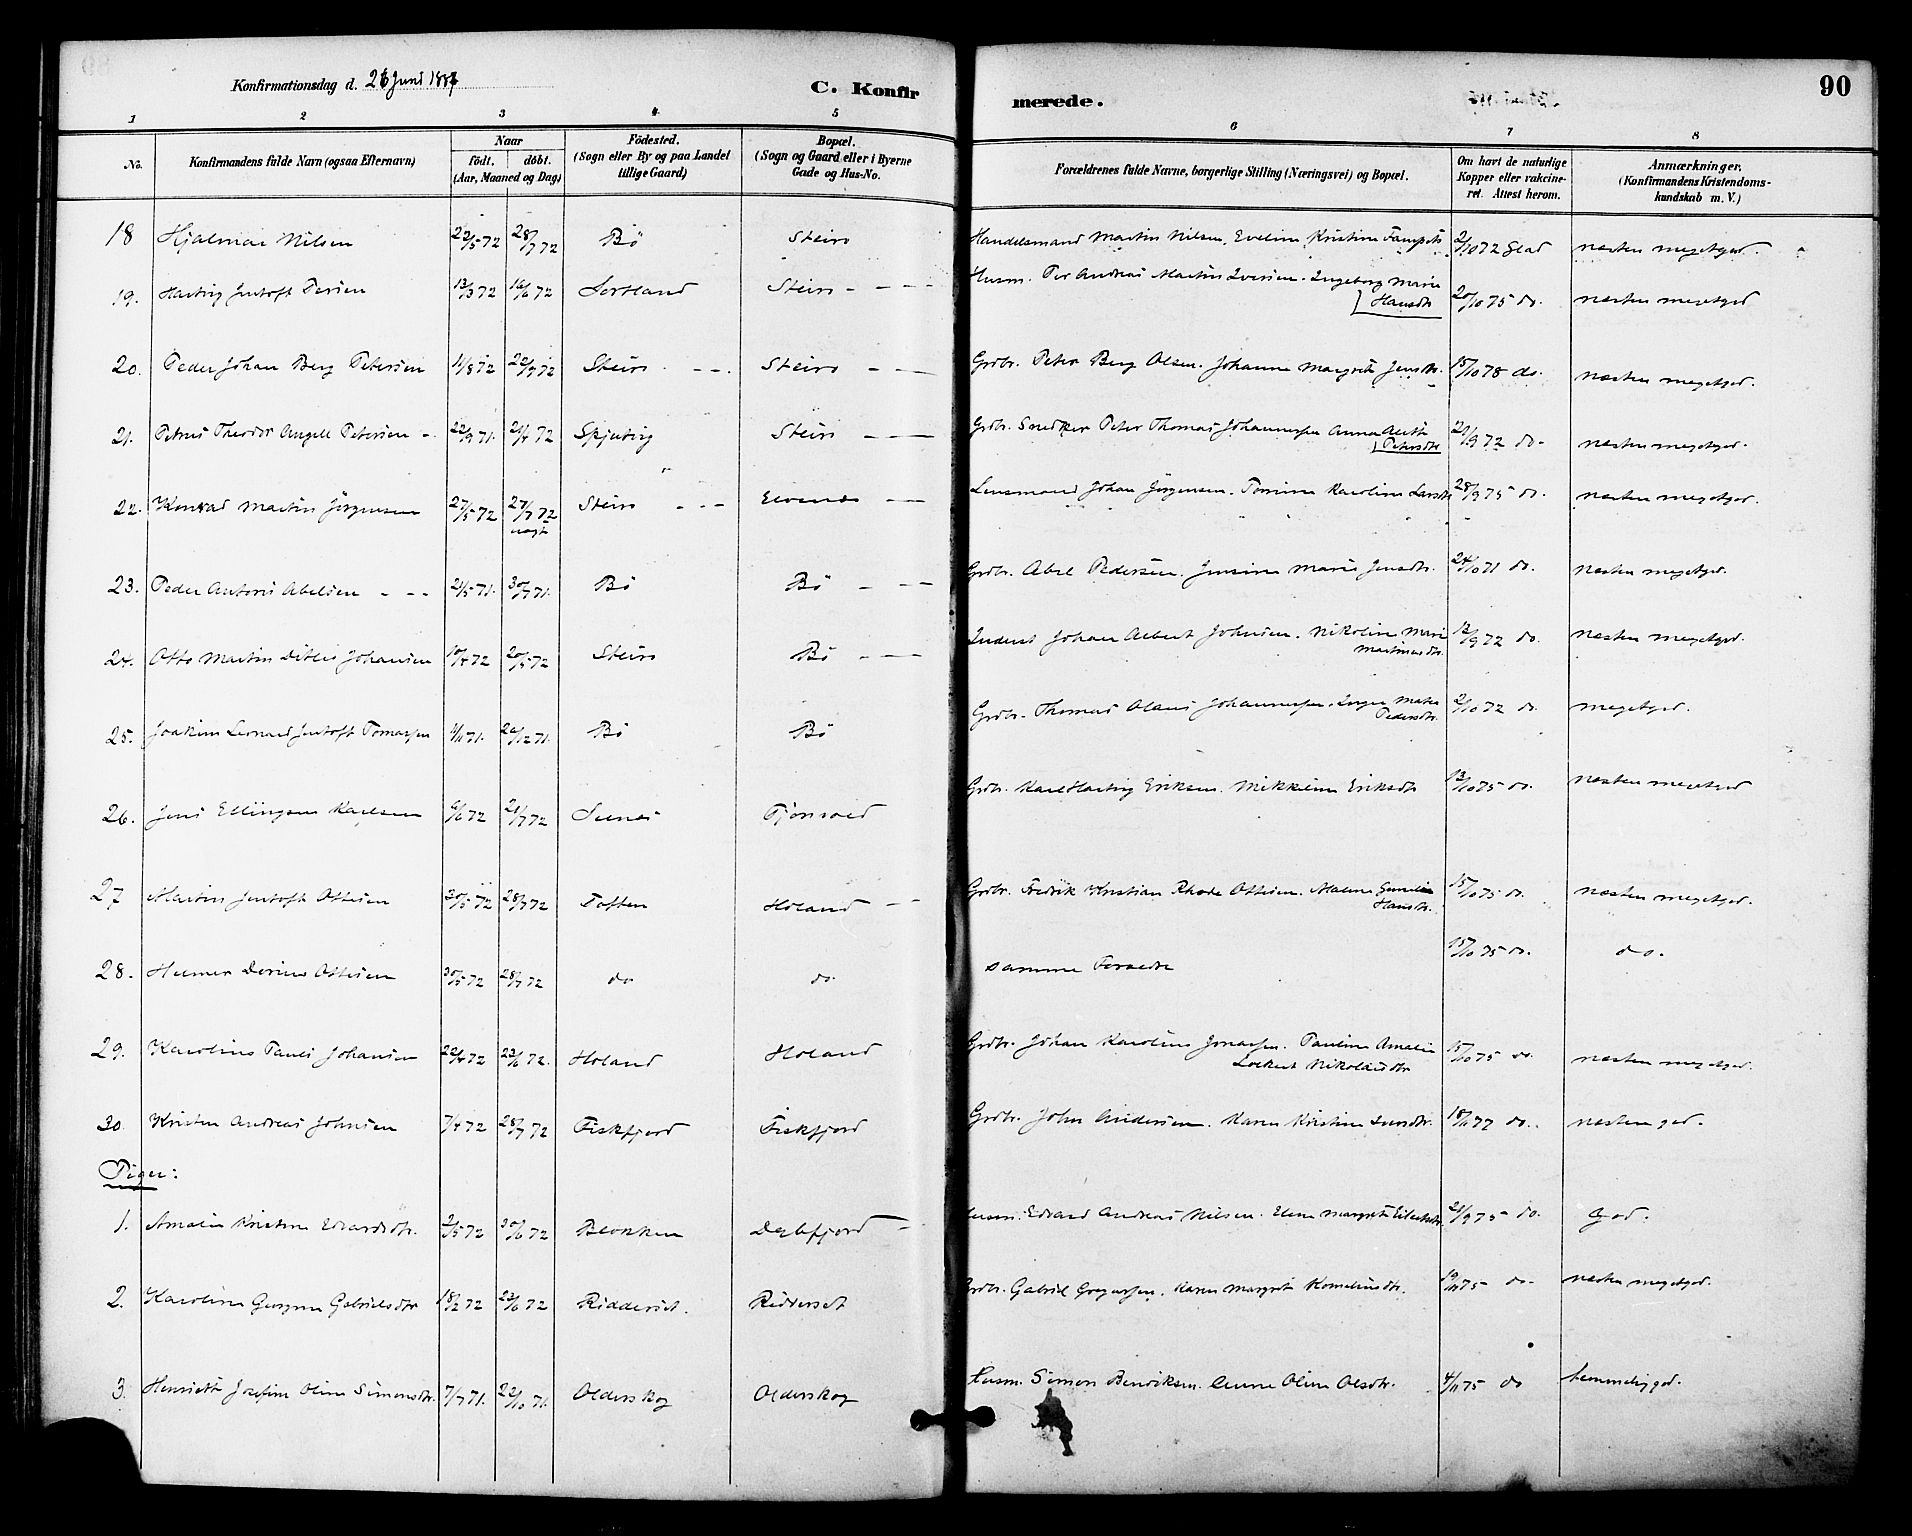 Konfirmationsdag d. 26 Juni 1887
C. Konfirmerede.
90
1 2 3 4 5 6 7 8
No. Konfirmandens fulde Navn (ogsaa Efternavn) Naar födt. döbt. (Aar, Maaned og Dag) Födested. (Sogn eller By og paa Landet tillige Gaard) Bopæl. (Sogn og Gaard eller i Byerne Gade og Hus-No. Forældrenes fulde Navne, borgerlige Stilling (Næringsvei) og Bopæl. Om havt de naturlige Kopper eller vakcineret. Attest herom. Anmærkninger, (Konfirmandens Kristendomskundskab m. V.)
18 Hjalmar Nilsen 22/5 72 28/7 72 Bö Steiro Handelsmand Martin Nilsen, Eveline Kristine 2/10 72 Glad næsten megetgod
19. Hartvig Jentoft Persen 13/3 72 16/6 72 Sortland Steiro - - - Husm. Per Andreas Martin Iversen. Ingeborg Marie Hansdtr 20/10 75 do. næsten megetgod
20. Peder Johan Berg Petersen 11/3 72 22/7 72 Steiro - - . Steiro - - Grdbr. Peter Berg Olsen. Johanna Margrete Jensdtr. 15/10 78 do. næsten megetgod.
21. Petrus Theodor Angell Petersen - 22/9 71. 21/4 72 Steiro - - - Grdbr. Snedker Peter Thomas Johannessen Anna Aleth Petersdtr 21/9 72 do - næsten megetgod.
22. Konrad Martin Jörgensen 27/5 72 27/7 72 Steiro - - - Evenes - - Lensmand Johan Jörgensen. Tomine Karoline Larsdtr 28/9 75 do. næsten megetgod.
23. Peder Antoni Abelsen - - - 21/5 71. 30/7 71. Bö Bö - - - Grdbr. Abel Pedersen. Jensine Marie Jensdtr. 24/10 71 do. næsten megetgod.
24. Otto Martin Ditlev Johansen 10/4 72 20/5 72 Steiro Bö - - - Inderst Johan Albert Johnsen. Nikoline Marie Martinusdtr. 12/9 72 do. næsten megetgod.
25. Joakim Leonard Jentoft Tomassen 1/11 71. 26/12 71. Bö Bö Grdbr. Thomas Olaus Johannessen. Inger Marta Pedersdtr. 2/10 72 do. megetgod.
26. Jens Ellingsen Karlsen 6/6 72 21/7 72 Grdbr. Karl Hartvig Eriksen. Mikkeline Eriksdtr 13/10 75 do. næsten megetgod
27 Martin Jentoft Ottesen 30/5 72 28/7 72 Toften Holand - - Grdbr. Fredrik Kristian Rhode Ottesen. Malene Gunelia Hansdtr. 15/10 75 do. næsten megetgod.
28. Helmer Dorius Ottesen 30/5 72 28/7 72 do do. samme Forældre 15/10 75 do. do.
29. Karolius Pauli Johansen 22/4 72 23/6 72. Holand Holand Grdbr. Johan Karolius Jonassen. Pauline Amalie Lockert Nikolaisdtr 15/10 75 do. næsten megetgod.
30. Kristen Andreas Johnsen 7/4 72 28/7 72 Fiskfjord Fiskfjord Grdbr. John Andersen. Karen Kristine Larsdtr. 18/11 77 do. næsten god.
Piger:
1. Amalie Kristine Edvardsdtr. 2/5 72 30/6 72 Blokken Husm. Edvard Andreas Nilsen. Elen Margrete 21/9 75 do. god.
2. Karoline Gurine Gabrielsdtr 18/2 72 23/6 72 Ridderset. Ridderset Grdbr. Gabriel Gregussen. Karen Margrete Korneliusdtr. 19/11 75 do. næsten megetgod.
3. Henriette Josefine Oline Simonsdtr. 7/7 71. 22/10 71. Olderskog Olderskog Husm. Simon Benriksen. Anne Oline Olsdtr. 4/11 75 do temmelig god.